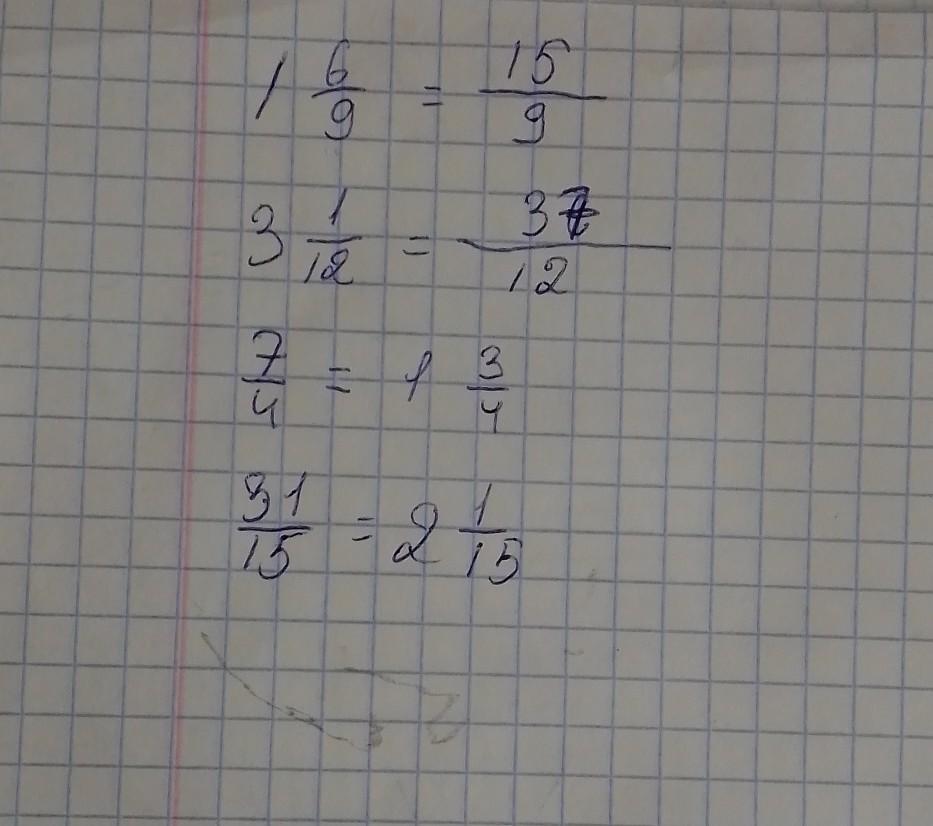 1 6/9 = 15/9
3 1/12 = 37/12
7/4 = 1 3/4
31/15 = 2 1/15